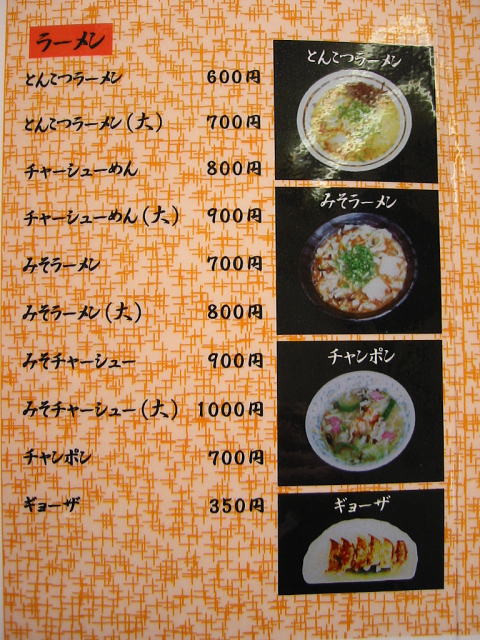 ラーメン
とんこつラーメン 600円
とんこつラーメン(大) 700円
チャーシューめん 800円
チャーシューめん(大) 900円
みそラーメン 700円
みそラーメン(大) 800円
みそチャーシュー 900円
みそチャーシュー(大) 1000円
チャンポン 700円
ギョーザ 350円
とんこつラーメン
みそラーメン
チャンポン
ギョーザ